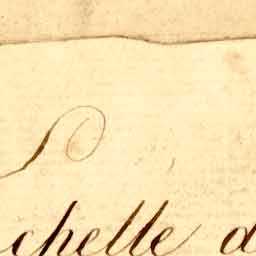 chelle d